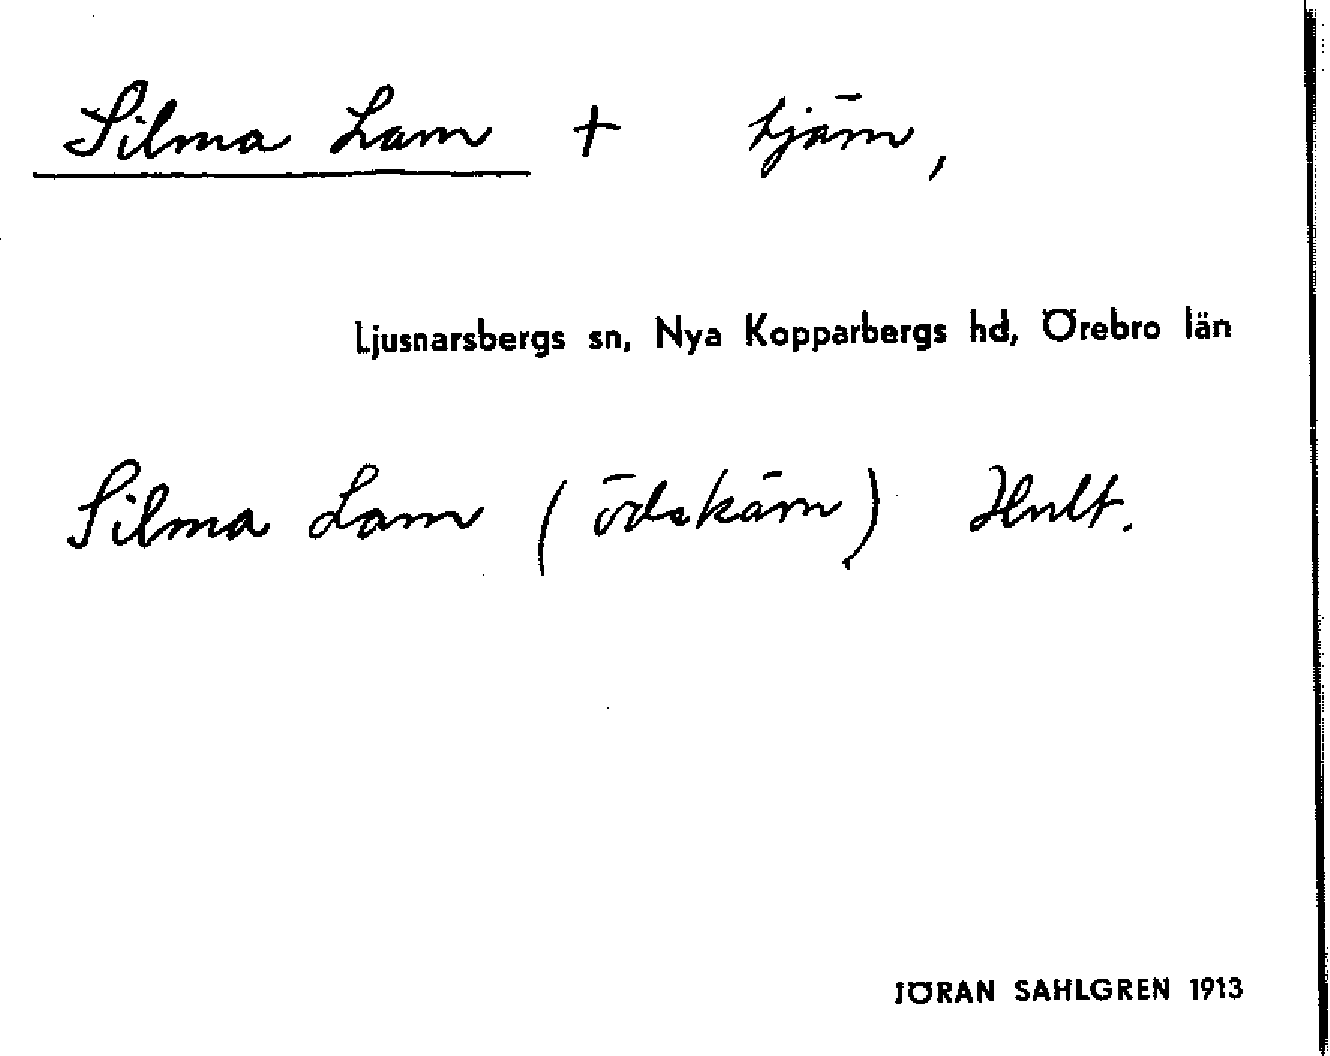 Silma Lam + tjärn,
Ljusnarsbergs sn, Nya Kopparbergs hd, Örebro län
Silma Lam (ödekärn) Hult.
JÖRAN SAHLGREN 1913